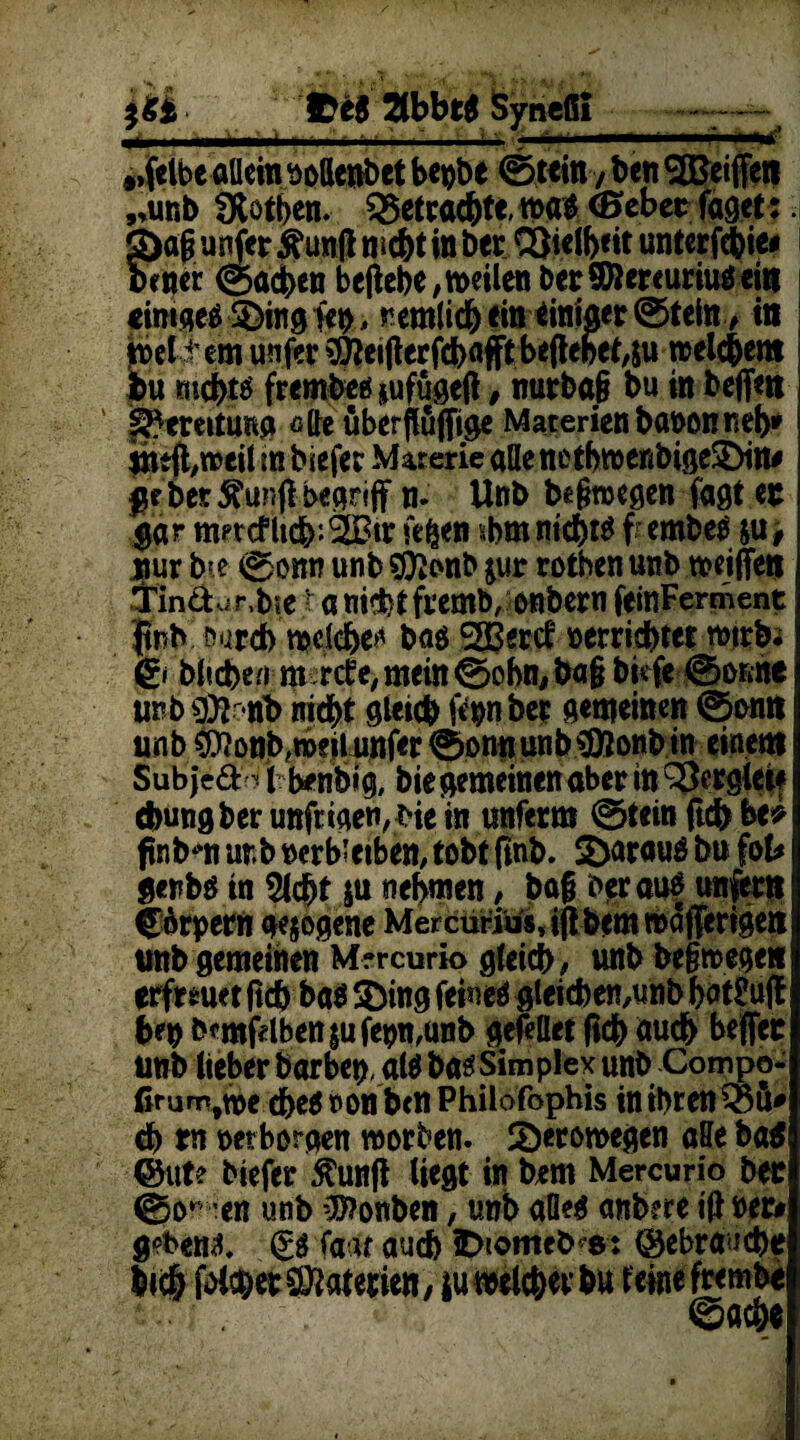 362 Des Abbts Synesii
„selbe allein vollendet beyde Stein, den Weissen
„und Rothen. Betrachte, was Geber saget:
Daß unser Kunst nicht in der Vielheit unterschie-
dener Sachen bestehe, weilen der Mercurius ein
einiges Ding sey, nemlich ein einiger Stein, in
welchem unser Meisterschafft bestehet, zu welchem
du nichts frembdes zufügest, nur daß du in dessen
Bereitung alle überflüssige Materien davon neh-
mest, weil in dieser Materie alle nothwendige Din-
ge der Kunst begriffen. Und deßwegen sagt er
gar mercklich: Wir setzen ihm nichts frembdes zu,
nur die Sonn und Mond zur rothen und weissen
Tinctur, die da nicht fremd, sondern sein Ferment
sind, durch welches das Werck verrichtet wird.
Endlichen mercke, mein Sohn, daß diese Sonne
und Mond nicht gleich seyn der gemeinen Sonn
und Mond, weil unser Sonn und Mond in einem
Subject lebendig, die gemeinen aber in Verglei-
chung der unsrigen, die in unserm Stein sich be-
finden und verbleiben, todt sind. Daraus du fol-
gends in Acht zu nehmen, daß der aus unsern
Cörpern gezogene Mercurius, ist dem wässerigen
und gemeinen Mercurio gleich, und deßwegen
erfreuet sich das Ding seines gleichen, und hat Lust
bey demselben zu seyn, und gesellet sich auch besser
und lieber darbey, als das Simplex und Compo-
situm, welches von den Philosophis in ihren Bü-
chern verborgen worden. Derowegen alle das
Gute dieser Kunst liegt in dem Mercurio der
Sonnen und Monden, und alles andere ist ver-
gebens. Es sagt auch Diomedes: Gebrauche
dich solcher Materien, zu welcher du keine frembde
Sache